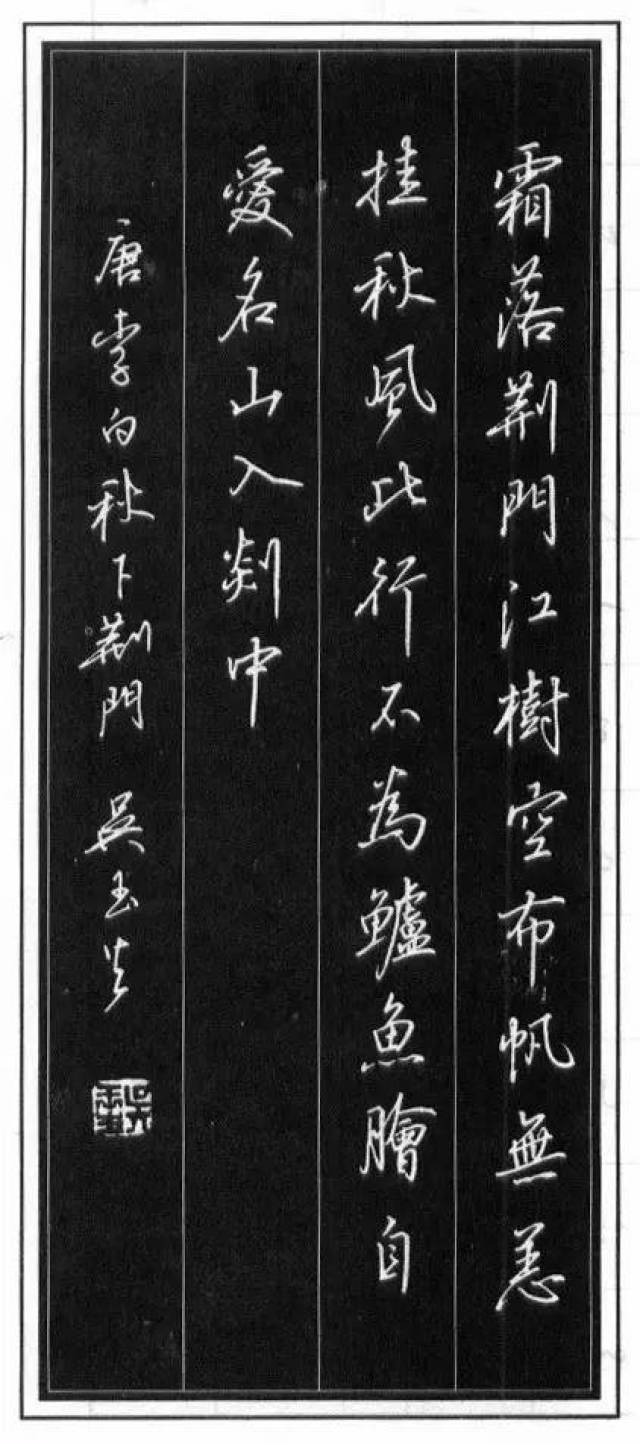 霜落荆門江樹空布帆無恙
挂秋風此行不為鱸魚膾自
愛名山入剡中
唐李白秋下荆門 吴玉生